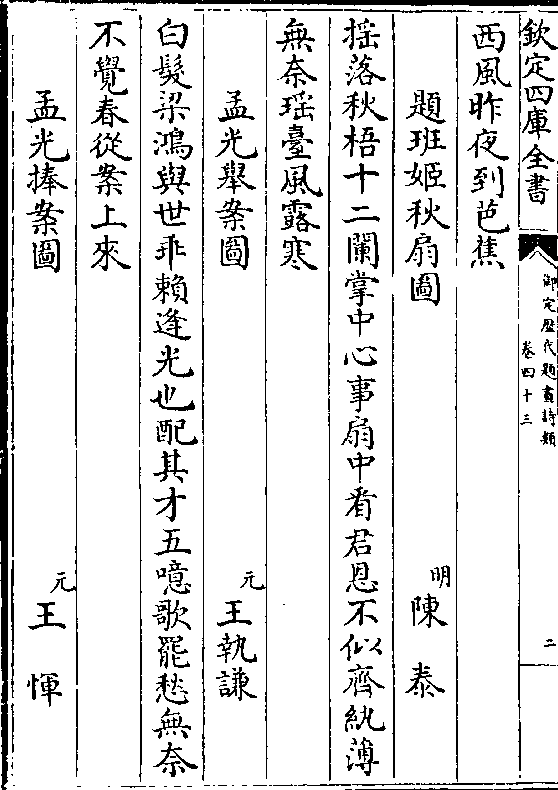 欽定四庫全書
御定歷代題畫詩類
卷四十三
二
西風昨夜到芭蕉
題班姬秋扇圖
明
陳泰
揺落秋梧十二闌掌中心事扇中看君恩不似齊紈薄
無奈瑶臺風露寒
孟光舉案圖
元
王執謙
白髮梁鴻與世乖賴逢光也配其才五噫歌罷愁無奈
不覺春從案上來
孟光捧案圖
元
王惲